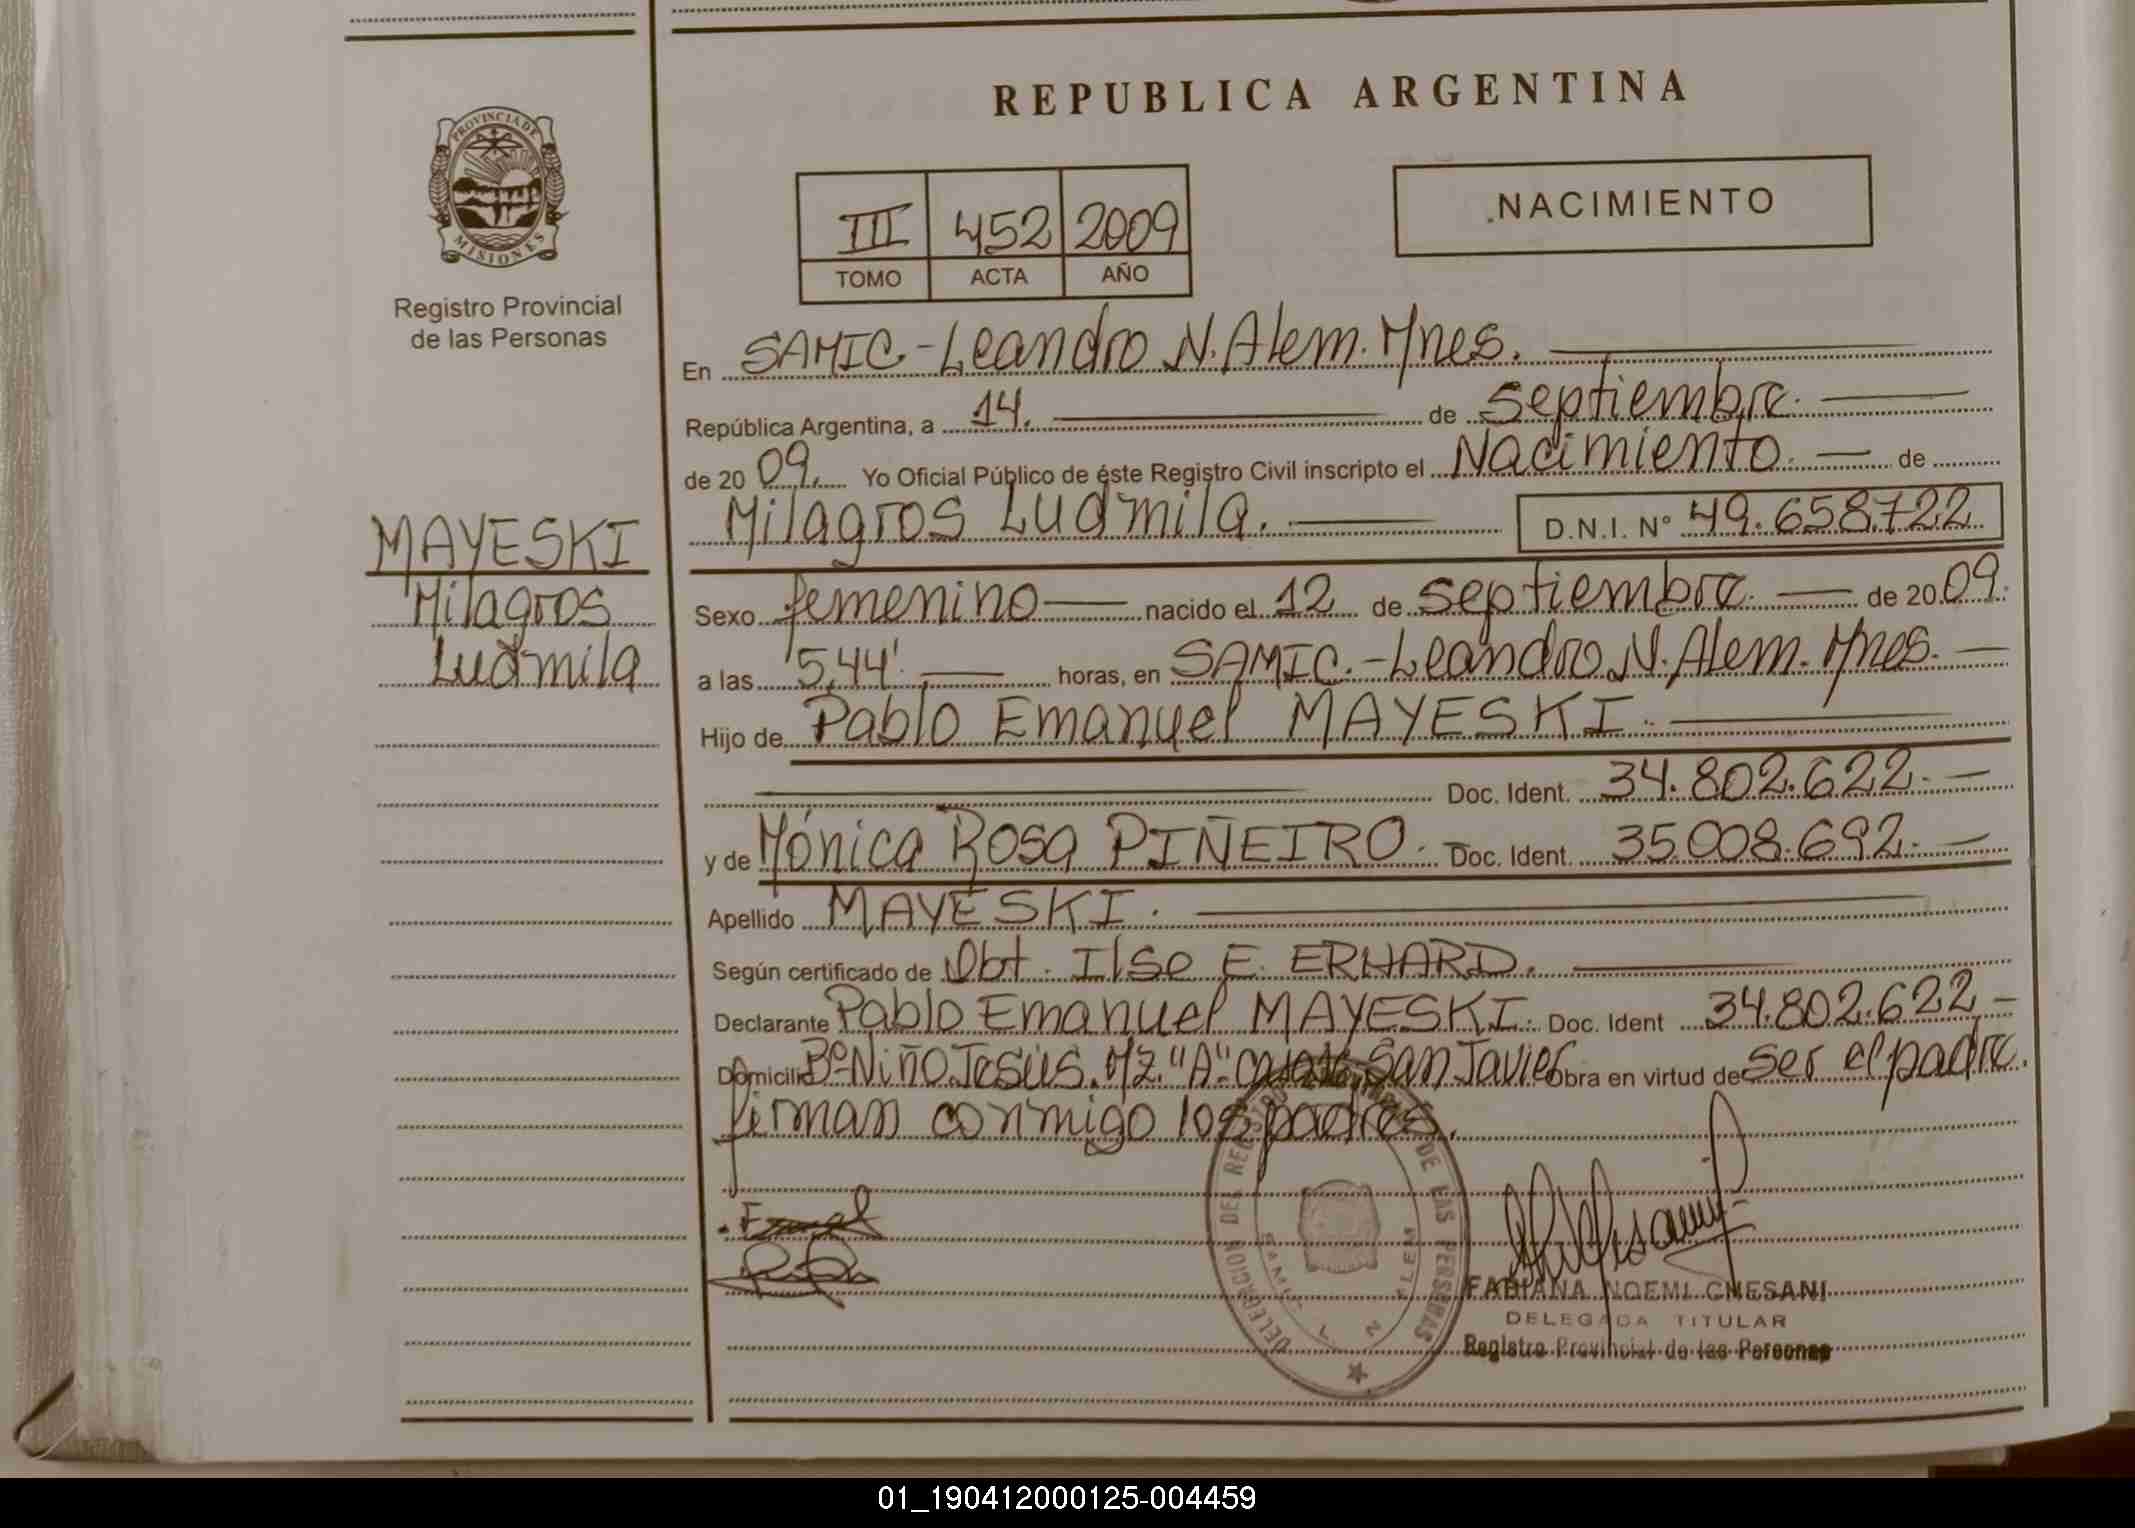 REPUBLICA ARGENTINA
PROVINCIA DE
MISIONES
Registro Provincial
de las Personas
III 452 2009
TOMO ACTA AÑO
NACIMIENTO
En SAMIC.-Leandro N. Alem. Mnes.
República Argentina, a 14. de Septiembre.
de 20 09. Yo Oficial Público de éste Registro Civil inscripto el Nacimiento. de
Milagros Ludmila. D.N.I. N° 49.658.722
MAYESKI
Milagros
Ludmila
Sexo femenino nacido el 12 de septiembre. de 20 09.
a las 5,44'. horas, en SAMIC.-Leandro N. Alem. Mnes.
Hijo de Pablo Emanuel MAYESKI.
Doc. Ident. 34.802.622.
y de Mónica Rosa PIÑEIRO. Doc. Ident. 35.008.692.
Apellido MAYESKI.
Según certificado de Obt. Ilse E. ERHARD.
Declarante Pablo Emanuel MAYESKI. Doc. Ident 34.802.622
Domicilio B° Niño Jesús. Mz. "A" San Javier Obra en virtud de ser el padre.
firman conmigo los padres.
DELEGACION DEL REGISTRO DE LAS PERSONAS
SAMIC L. N. ALEM
FABIANA NOEMI CHESANI
DELEGADA TITULAR
Registro Provincial de las Personas
01_190412000125-004459